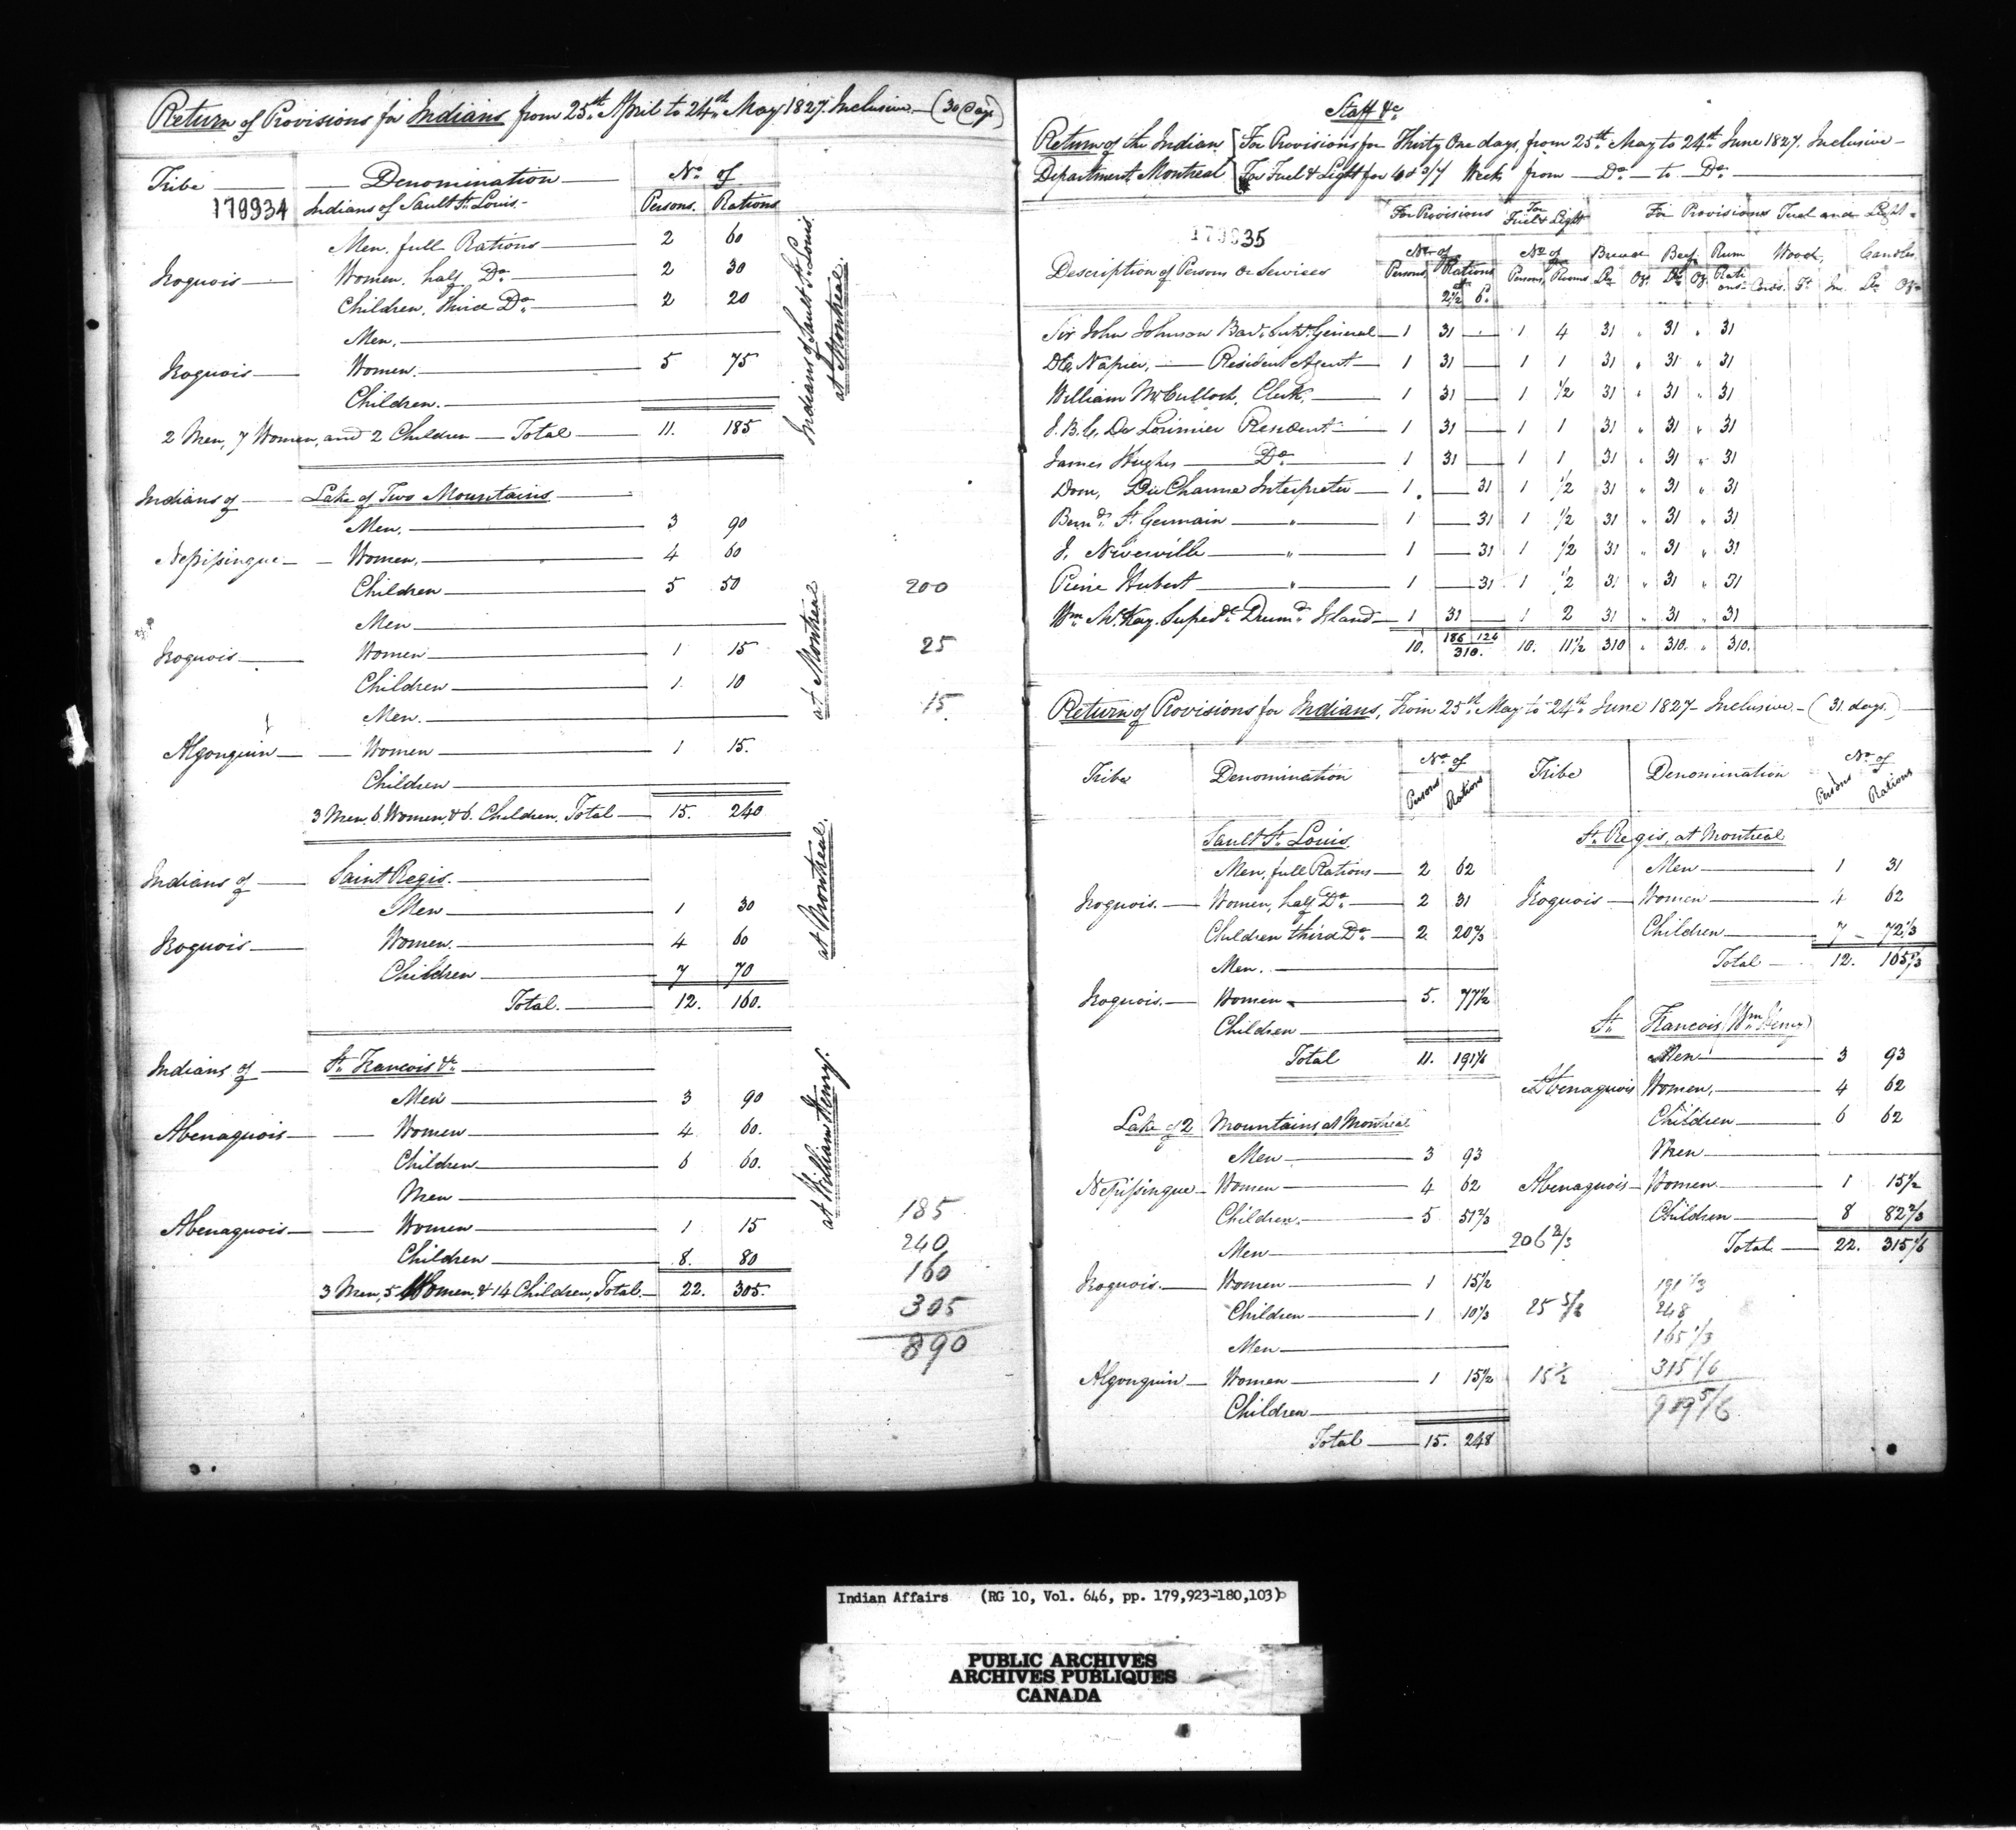 Return of Provisions for Indians from 25th April to 24th May 1827. Inclusive — (30 Days)
Tribe — Denomination — No. of
179934 Indians of Sault St. Louis - Persons. Rations
Men, full Rations — 2 60
Iroquois — Women, half Do — 2 30
Children, third Do — 2 20
Men. —
Iroquois — Women. — 5 75
Children. —
2 Men, 7 Women, and 2 Children — Total — 11. 185
Indians of Sault St. Louis
at Montreal.
Indians of — Lake of Two Mountains —
Men. — 3 90
Nepissingue — Women. — 4 60
Children — 5 50 200
Men —
Iroquois — Women — 1 15 25
Children — 1 10
Men. — 15
Algonquin — Women — 1 15.
Children —
3 Men, 6 Women, & 6 Children, Total — 15. 240
at Montreal
Indians of — Saint Regis. —
Men — 1 30
Iroquois — Women. — 4 60
Children — 7 70
Total. — 12. 160.
at Montreal.
Indians of — St. Francois &c —
Men — 3 90
Abenaquois — Women — 4 60.
Children — 6 60.
Men —
Abenaquois — Women — 1 15
Children — 8. 80
3 Men, 5 Women, & 14 Children, Total — 22. 305.
at William Henry.
185
240
160
305
890
Staff &c
Return of the Indian { For Provisions for Thirty One days, from 25th May to 24th June 1827. Inclusive —
Department Montreal { For Fuel & Light for 4 & 3/7 Week from — Do — to — Do
For Provisions For Fuel & Light For Provisions Fuel and Light
179935
Description of Persons or Services No. of Persons Rations No. of Persons Rooms Bread Beef Rum Wood, Candles
2½ 6.
Sir John Johnson Bart. Supt. General — 1 31 — 1 4 31 " 31 " 31
D C Napier, — Resident Agent — 1 31 — 1 1 31 " 31 " 31
William McCulloch, Clerk, — 1 31 — 1 1/2 31 " 31 " 31
J. B. C. De Lorimier Resident — 1 31 — 1 1 31 " 31 " 31
James Hughes — Do — 1 31 — 1 1 31 " 31 " 31
Dom, DuCharme Interpreter — 1 — 31 1 1/2 31 " 31 " 31
Bernd. St. Germain — " — 1 — 31 1 1/2 31 " 31 " 31
J. Niverville — " — 1 — 31 1 1/2 31 " 31 " 31
Pierre Hubert — " — 1 — 31 1 1/2 31 " 31 " 31
Wm. McKay. Supedt. Drumd. Island — 1 31 — 1 2 31 " 31 " 31
10. 186 124 10. 11½ 310 " 310. " 310.
310.
Return of Provisions for Indians, From 25th May to 24th June 1827 - Inclusive — (31 days.)
Tribe Denomination No. of Persons Rations Tribe Denomination No. of Persons Rations
Sault St. Louis
Men, full Rations — 2 62
Iroquois. — Women, half Do — 2 31
Children third Do — 2 20⅔
Men. —
Iroquois. — Women — 5. 77½
Children —
Total 11. 191⅙
Lake of 2 Mountains, at Montreal
Men — 3 93
Nepissingue — Women — 4 62
Children. — 5 51⅔ 206⅔
Men —
Iroquois. — Women — 1 15½
Children — 1 10⅓ 25⅚
Men —
Algonquin — Women — 1 15½ 15½
Children —
Total — 15. 248
St. Regis, at Montreal
Men — 1 31
Iroquois — Women — 4 62
Children — 7 — 72⅓
Total — 12. 165⅓
St. Francois (Wm. Henry)
Men — 3 93
Abenaquois Women, — 4 62
Children — 6 62
Men —
Abenaquois — Women — 1 15½
Children — 8 82⅔
Total — 22. 315⅙
248
165⅓
315⅙
Indian Affairs (RG 10, Vol. 646, pp. 179,923-180,103)
PUBLIC ARCHIVES
ARCHIVES PUBLIQUES
CANADA